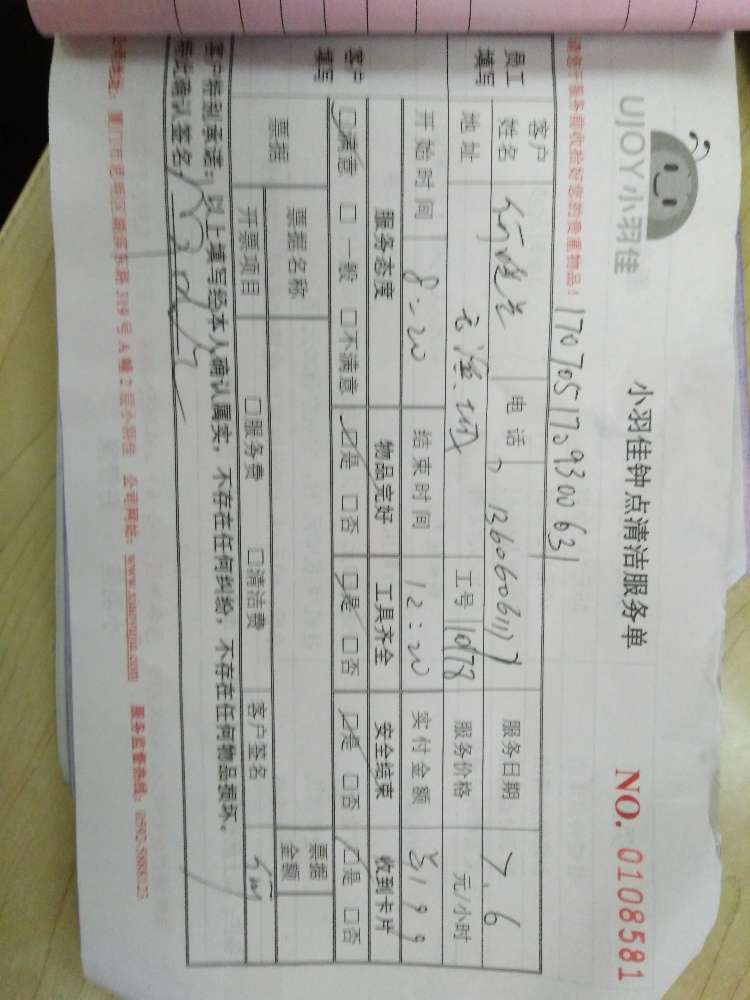 UJOY小羽佳
小羽佳钟点清洁服务单
NO. 0108581
请您于服务前收拾好您的贵重物品！
1707051709300631
员工填写
客户姓名
电话
服务日期 7.6
地址
工号 1078
服务价格 元/小时
开始时间 8:20
结束时间 12:20
实付金额
客户填写
服务态度 物品完好 工具齐全 安全结束 收到卡片
☑满意 □一般 □不满意 ☑是 □否 ☑是 □否 ☑是 □否 ☑是 □否
票据
票据名称
票据金额
开票项目 □服务费 □清洁费
客户签名
客户特别承诺：以上填写经本人确认属实，不存在任何纠纷，不存在任何物品损坏。
特此确认签名：
厦门市思明区 319号A幢2层小羽佳 公司网站：www.xiaoyujia.com 服务监督热线：